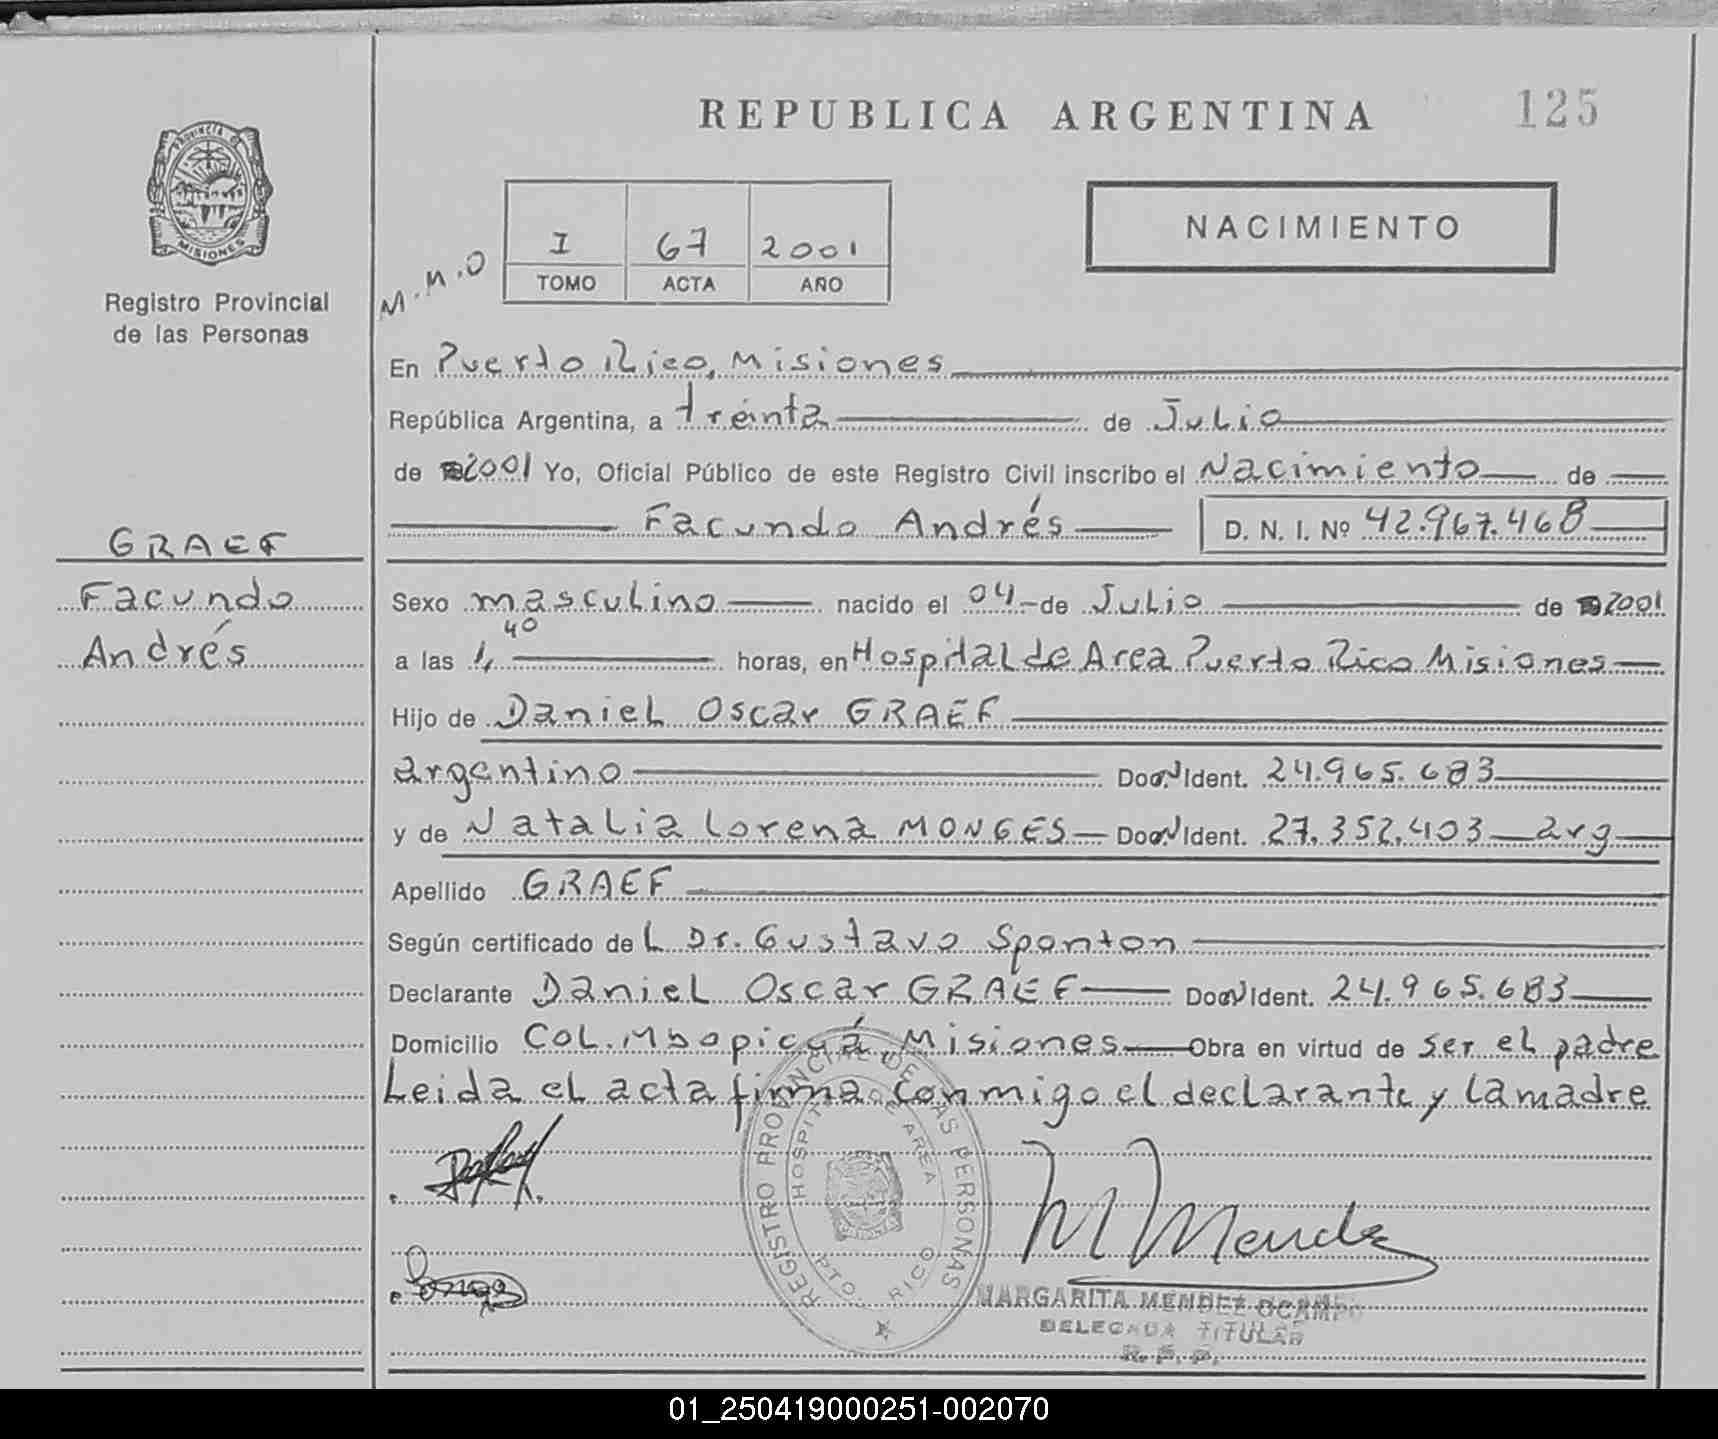 REPUBLICA ARGENTINA
125
PROVINCIA DE
MISIONES
Registro Provincial
de las Personas
NACIMIENTO
M.M.O
I 67 2001
TOMO ACTA AÑO
En Puerto Rico, Misiones
República Argentina, a treinta de Julio
de 2001 Yo, Oficial Público de este Registro Civil inscribo el Nacimiento de
Facundo Andrés D. N. I. Nº 42.967.468
GRAEF
Facundo
Andrés
Sexo masculino nacido el 04 de Julio de 2001
a las 1,40 horas, en Hospital de Area Puerto Rico Misiones
Hijo de Daniel Oscar GRAEF
argentino Doc. N Ident. 24.965.683
y de Natalia Lorena MONGES Doc. N Ident. 27.352.403 arg
Apellido GRAEF
Según certificado del Dr. Gustavo Sponton
Declarante Daniel Oscar GRAEF Doc. N Ident. 24.965.683
Domicilio Col. Mbopicuá Misiones Obra en virtud de ser el padre
Leida el acta firma conmigo el declarante y la madre
REGISTRO PROVINCIAL DE LAS PERSONAS
HOSPITAL DE AREA
PTO. RICO
M Mendez
MARGARITA MENDEZ OCAMPO
DELEGADA TITULAR
R. P. P.
01_250419000251-002070